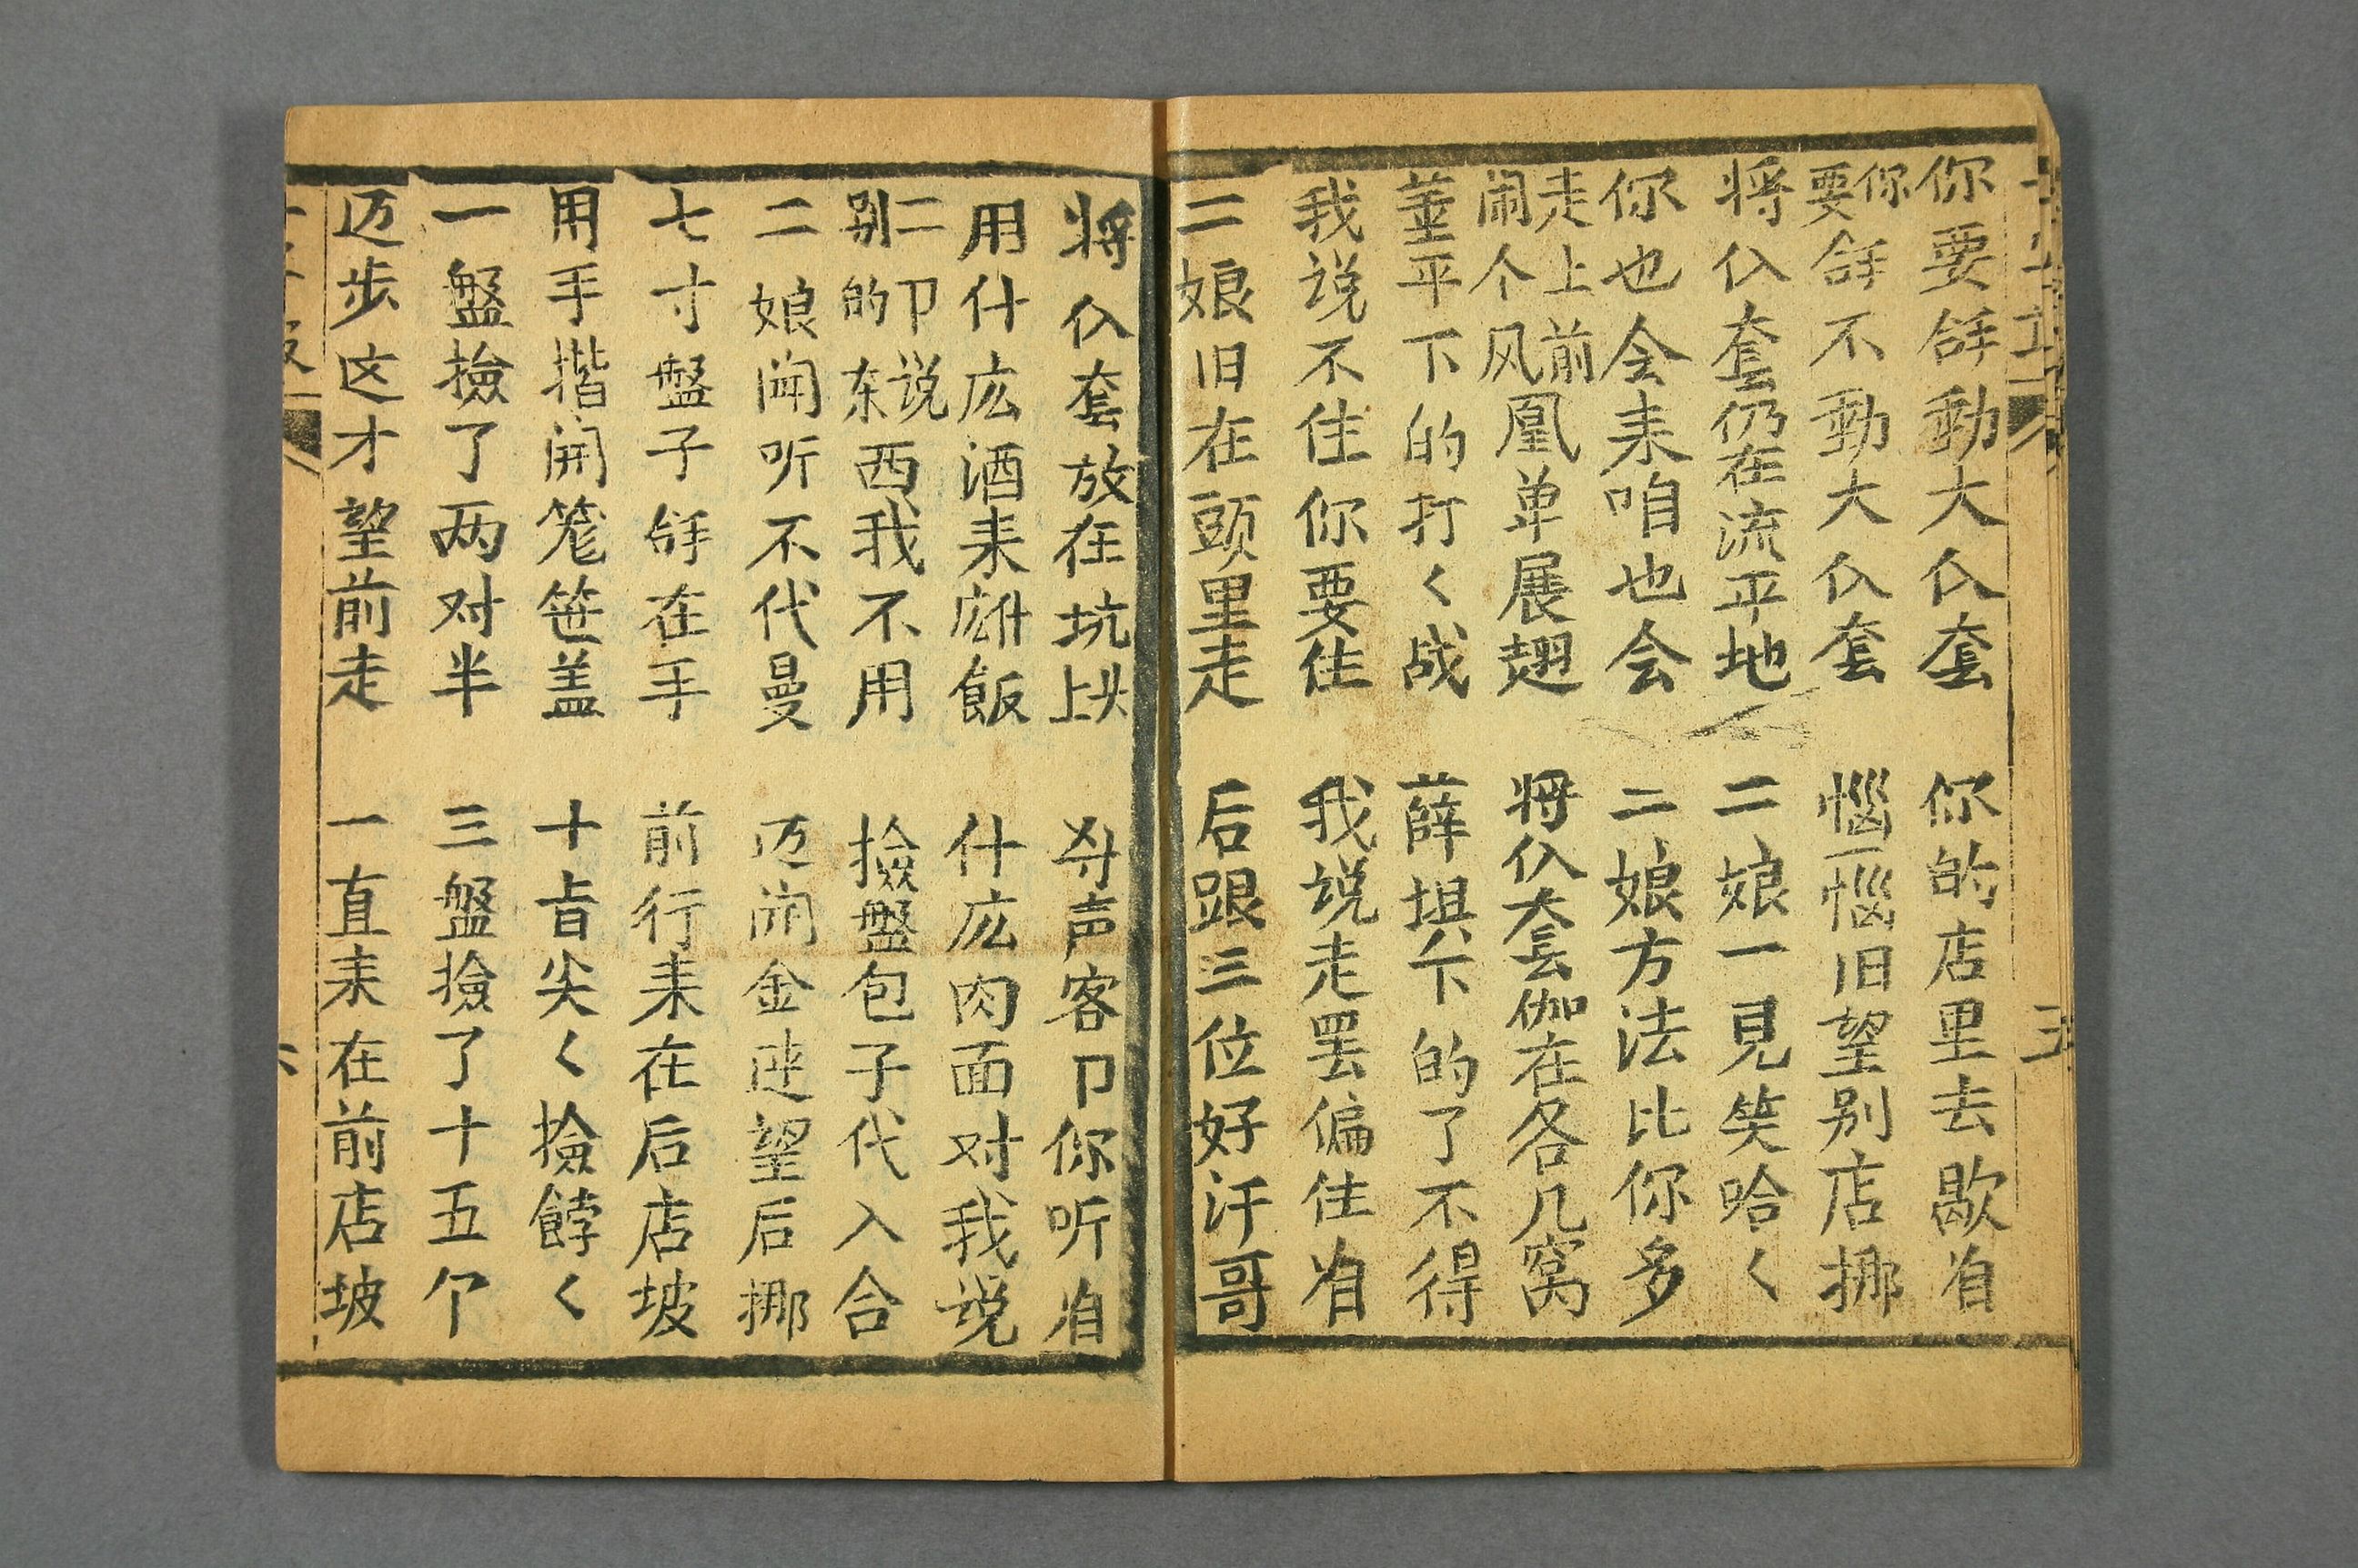 你要𢪏動大仈套　你的店里去歇㸔
你要𢪏不動大仈套　惱一惱旧望別店挪
将仈套扔在流平地　二娘一見笑哈く
你也会耒咱也会　二娘方法比你多
走上前闹个风凰单展翅　将仈套伽在各几窝
董平下的打く战　薛垻下的了不得
我说不住你要住　我说走罢偏住㸔
二娘旧在頭里走　后跟三位好汗哥
将仈套放在坑上头　叫声客卩你听㸔
用什庅酒耒什庅飯　什庅肉面对我说
二卩说别的东西我不用　撿盤包子代入合
二娘闻听不代曼　迈開金莲望后挪
七寸盤子𢪏在手　前行耒在后店坡
用手揩開笼笹盖　十旨尖く撿餑く
一盤撿了两对半　三盤撿了十五个
迈步这才望前走　一直耒在前店坡